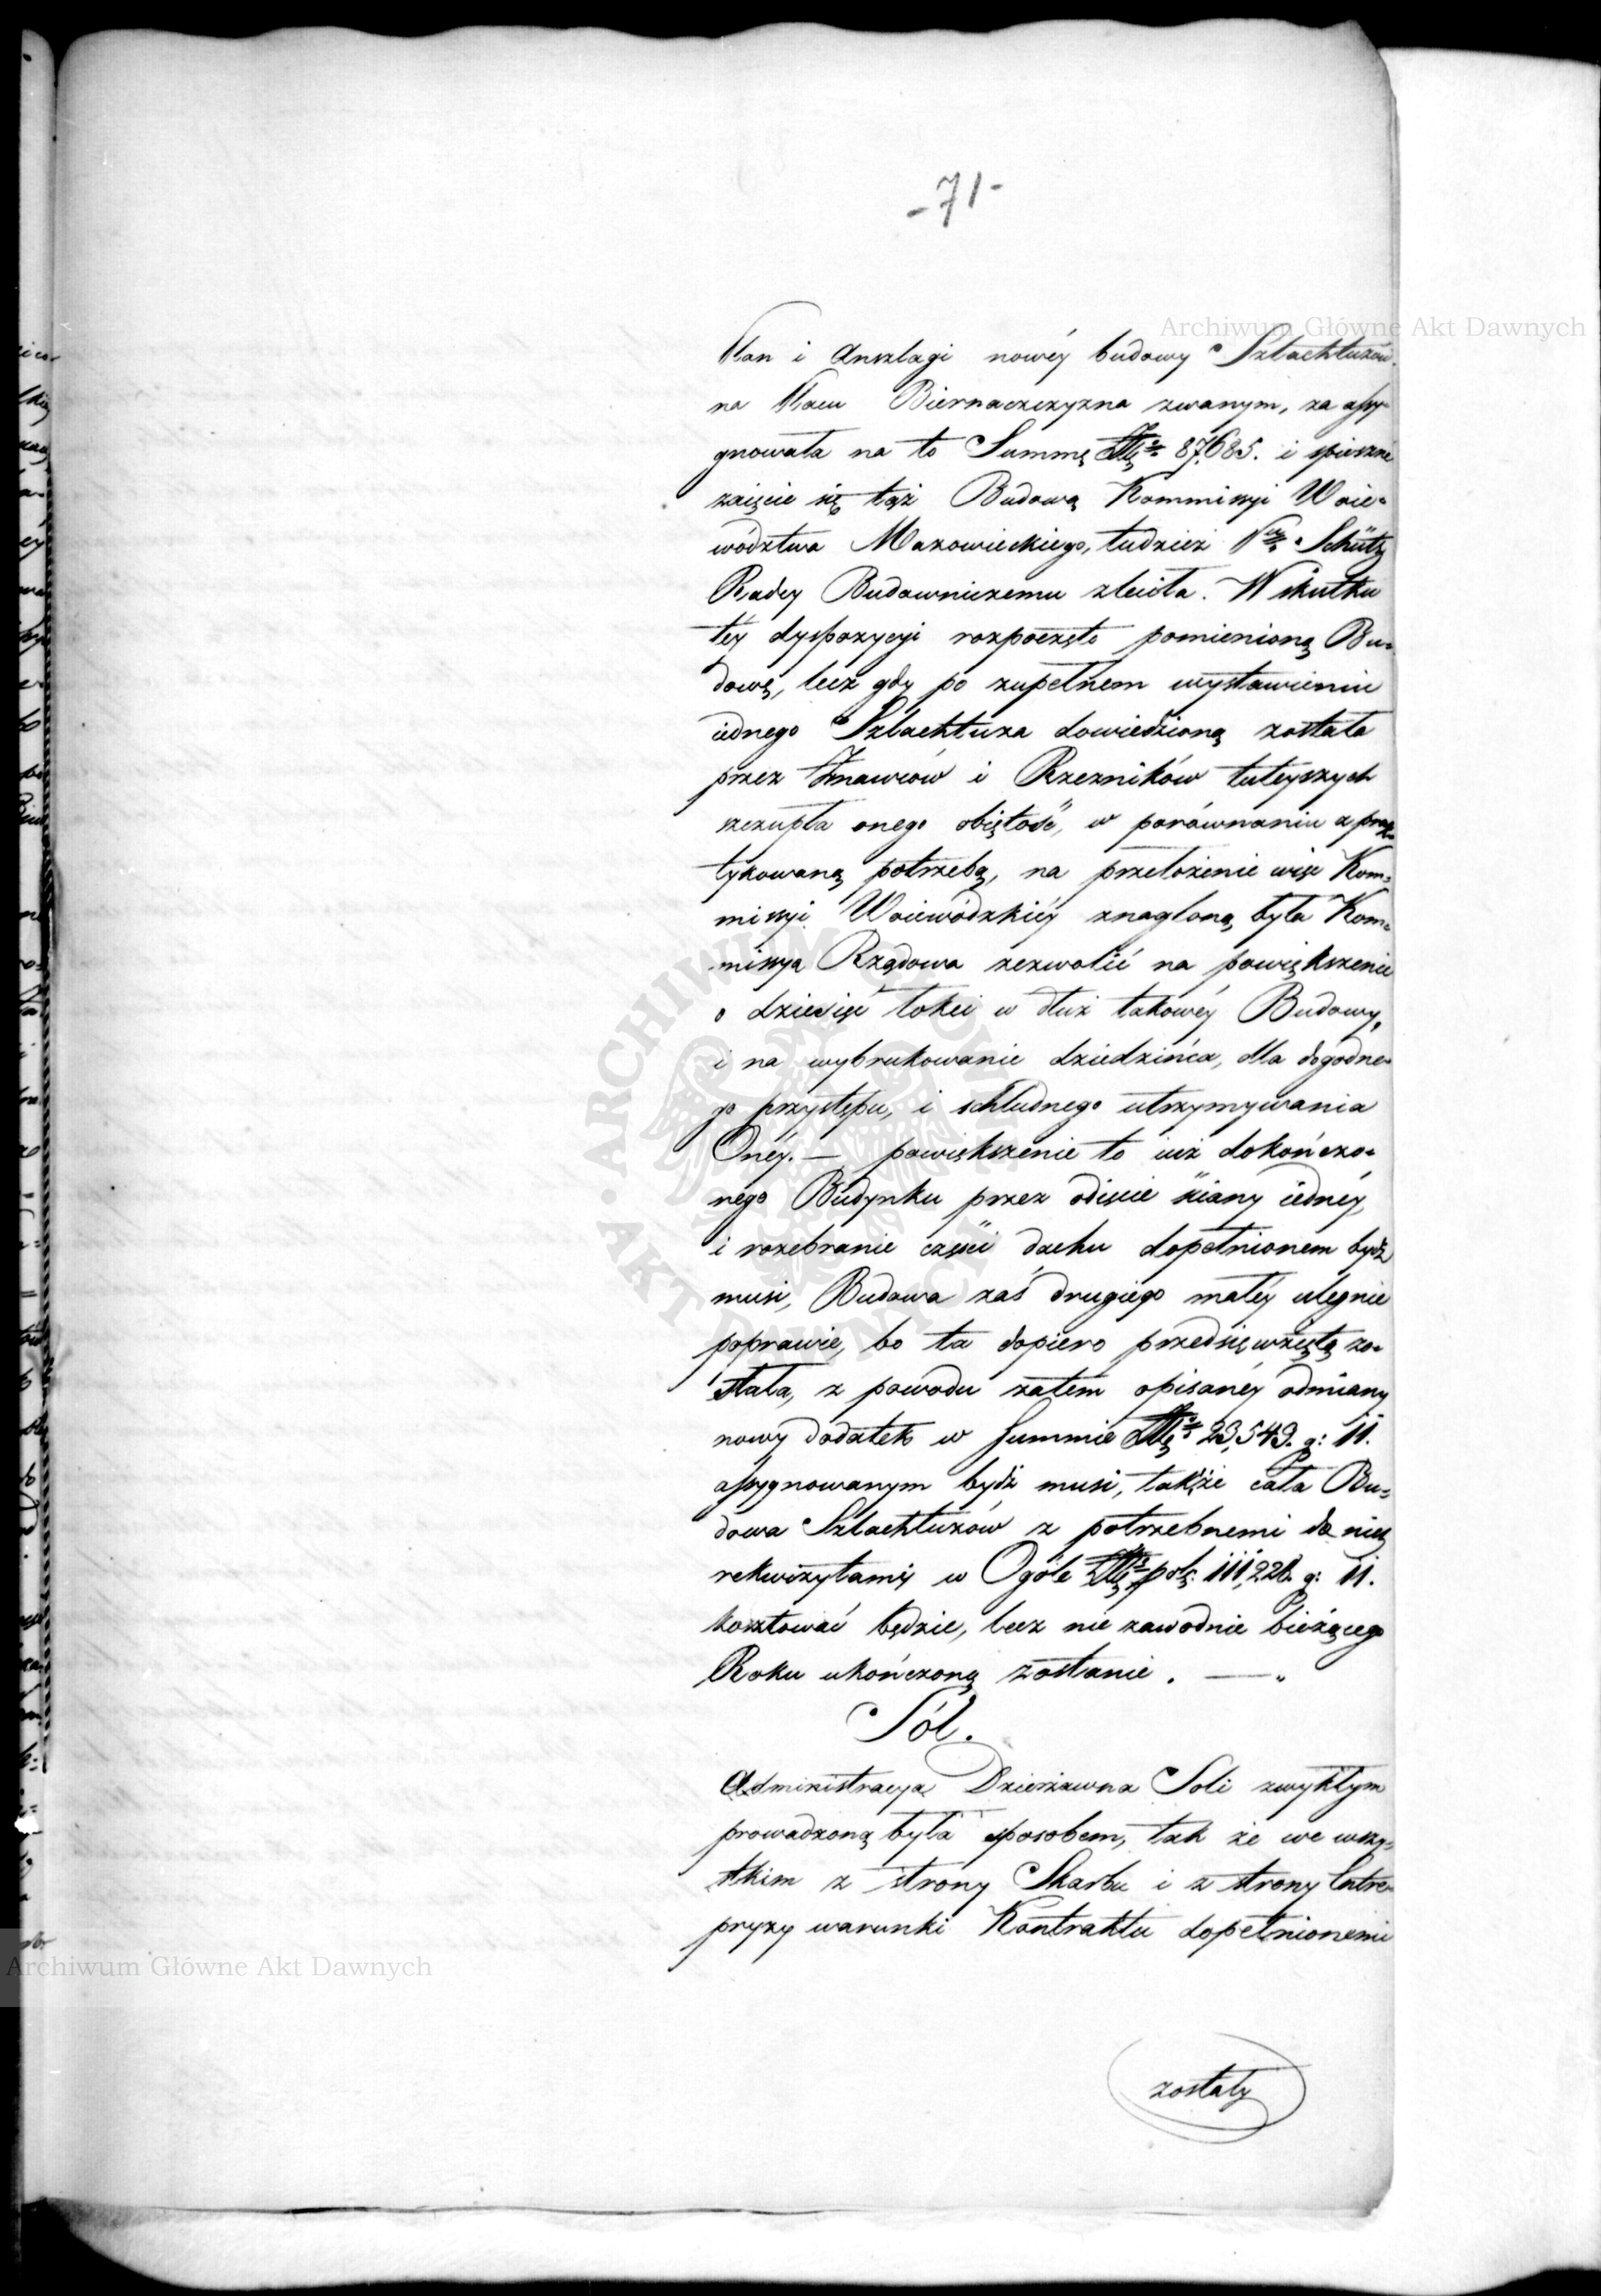 -71-
Plan i Anszlagi nowéy budowy Szlachtuzów
na Placu Biernaczczyzna zwanym, za assy-
gnowała na to Summę Złł: 87,685. i spieszne
zaięcie się tąż Budową Kommissyi Woie-
wództwa Mazowieckiego, tudzież Schütz
Radcy Budowniczemu zleciła. W skutku
téy dyspozycyi rozpoczęto pomienioną Bu-
dowę, lecz gdy po zupełnem wystawieniu
iednego Szlachtuza dowiedzioną została
przez Znawców i Rzezników tuteyszych
szczupła onego obiętość, w porównaniu z prak-
tykowaną potrzebą, na przełożenie więc Kom-
missyi Woiewódzkiéy znagloną była Kom-
missya Rządowa zezwolić na powiększenie
o dziesięć łokci w dłuż takowéy Budowy,
i na wybrukowanie dziedzińca, dla dogodne-
go przystępu, i schludnego utrzymywania
Onéy. — powiększenie to iuż dokończo-
nego Budynku przez odięcie ściany iednéy,
i rozebranie części dachu dopełnionem bydź
musi, Budowa zaś drugiego małéy ulegnie
poprawie, bo ta dopiero przedsięwziętą zo-
stała, z powodu zatém opisanéy odmiany
nowy dodatek w Summie Złł: 23,543. g: 11.
assygnowanym bydź musi, także cała Bu-
dowa Szlachtuzów z potrzebnemi do nich
rekwizytami w Ogóle Złł: pols: 111,228. g: 11.
kosztować będzie, lecz nie zawodnie bieżącego
Roku ukończoną zostanie. —
Sól.
Administracya Dzierżawna Soli zwykłym
prowadzoną była sposobem, tak że we wszy-
stkim z strony Skarbu i z strony Entre-
pryzy warunki Kontraktu dopełnionemi
zostały
Archiwum Główne Akt Dawnych
Archiwum Główne Akt Dawnych
ARCHIWUM GŁÓWNE AKT DAWNYCH